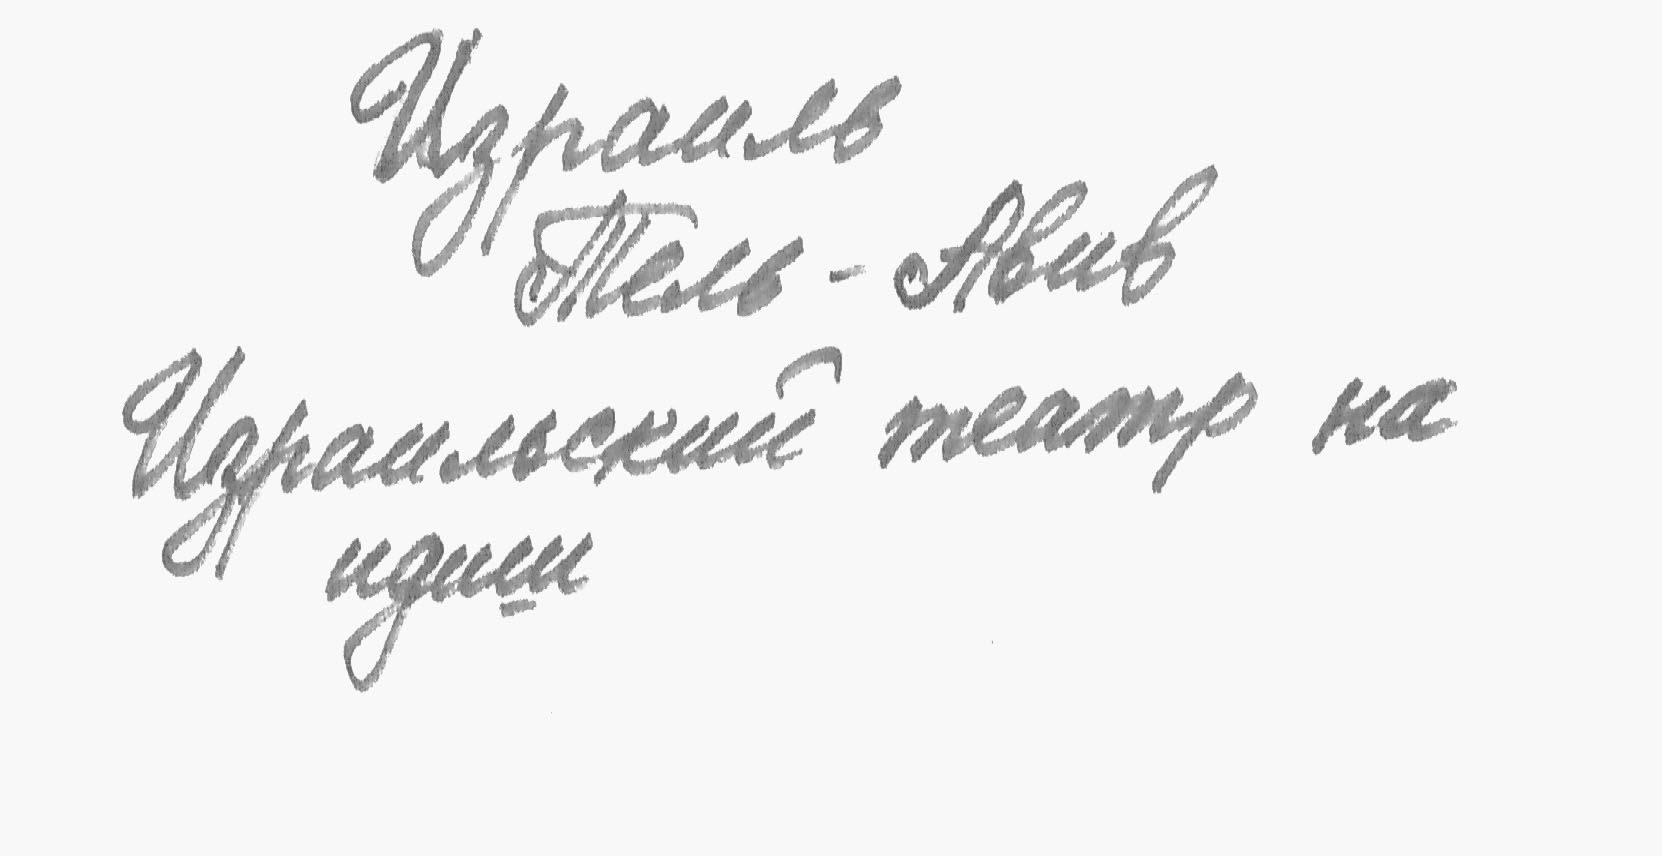 Израиль
Тель-Авив
Израильский театр на
идиш